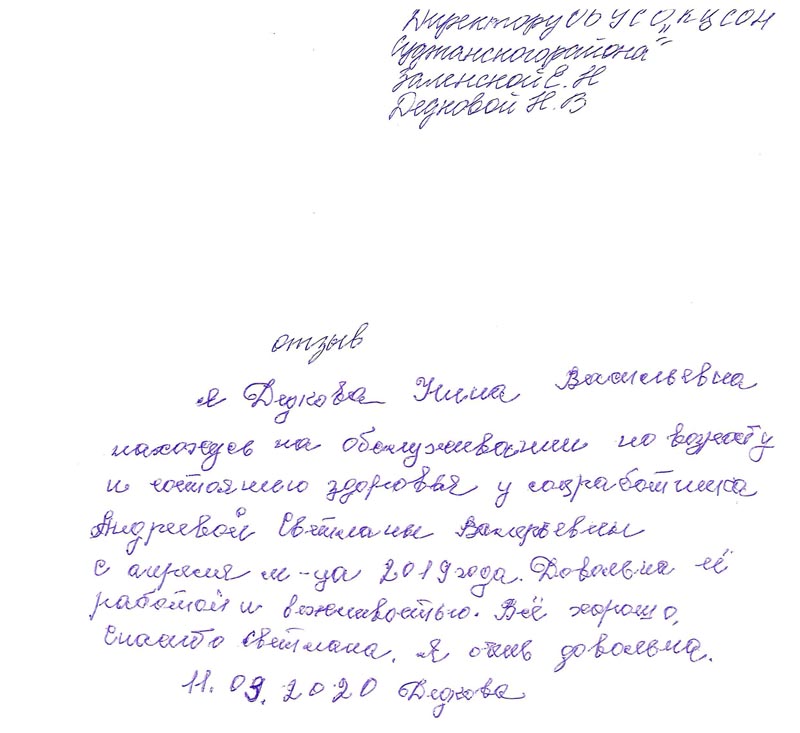 Директору ОБУСО „КЦСОН
Суджанского района"
Заленской Е. Н
Дедковой Н. В
отзыв
я Дедкова Нина Васильевна
нахожусь на обслуживании по возрасту
и состоянию здоровья у соцработника
Андреевой Светланы Валерьевны
с апреля м-ца 2019 года. Довольна её
работой и вежливостью. Всё хорошо,
Спасибо Светлана. Я очень довольна.
11.09.2020 Дедкова